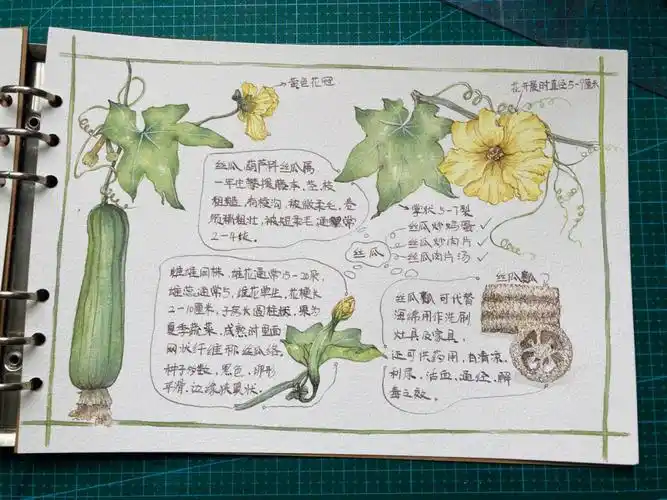 黄色花冠
花开展时直径5-9厘米
丝瓜,葫芦科丝瓜属
一年生攀援藤本,茎枝
粗糙,有棱沟,被微柔毛,卷
须稍粗壮,被短柔毛,通常
2-4歧。
掌状5-7裂
丝瓜炒鸡蛋✓
丝瓜炒肉片✓
丝瓜肉片汤✓
丝瓜
雌雄同株,雄花通常15-20朵,
雄蕊通常5,雌花单生,花梗长
2-10厘米,子房长圆柱状,果为
夏季蔬菜,成熟时里面
网状纤维称丝瓜络,
种子多数,黑色,卵形
平滑,边缘狭翼状。
丝瓜瓤
丝瓜瓤可代替
海绵用作洗刷
灶具及家具,
还可供药用,有清凉,
利尿、活血、通经、解
毒之效。